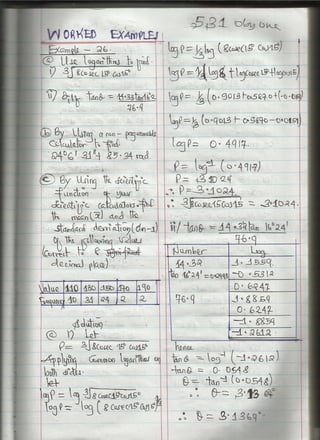 531 Obyone
WORKED EXAMPLES
Example - 26
(a) Use logarithms to find
i) 3√8cosec 15° cos15°
ii) θ if tanθ = 14.32 tan16°2
76.9
(b) By Using a non-programmable
calculator to find
(c) By Using the scientific
function of your
scientific calculators find
the mean (x̄) and the
standard deviation (σn-1)
of the following values
(correct to
decimal place)
Value 110 130 150 170 190
Frequency 10 31 24 2 2
Solution
(a) i) Let
P = 3√8cosec 15° cos15°
Applying Common logarithm on
both sides
let
log P = log 3√8cosec15°cos15°
log P = log (8cosec15°cos15°)^⅓
log P = ⅓ log (8cosec15° cos15°)
log P = ⅓ (log 8 + log cosec 15° + log cos15°)
log P = ⅓ (0.9031 + 0.5870 + (-0.0151)
log P = ⅓ (0.9031 + 0.5870 - 0.0151)
log P = 0.4917
P = log⁻¹ (0.4917)
P = 3.1024
∴ P = 3.1024
∴ 3√8cosec15cos15 = 3.1024.
ii/ tanθ = 14.32 tan 16°24'
76.9
Number Log
14.32 1.1559
tan 16°24' -0.5312
0.6247
76.9 1.8859
0.6247
-1.8859
-1.2612
hence
tanθ = log⁻¹ (-1.2612)
tanθ = 0.0548
θ = tan⁻¹ (0.0548)
∴ θ = 3.13
∴ θ = 3.1369°